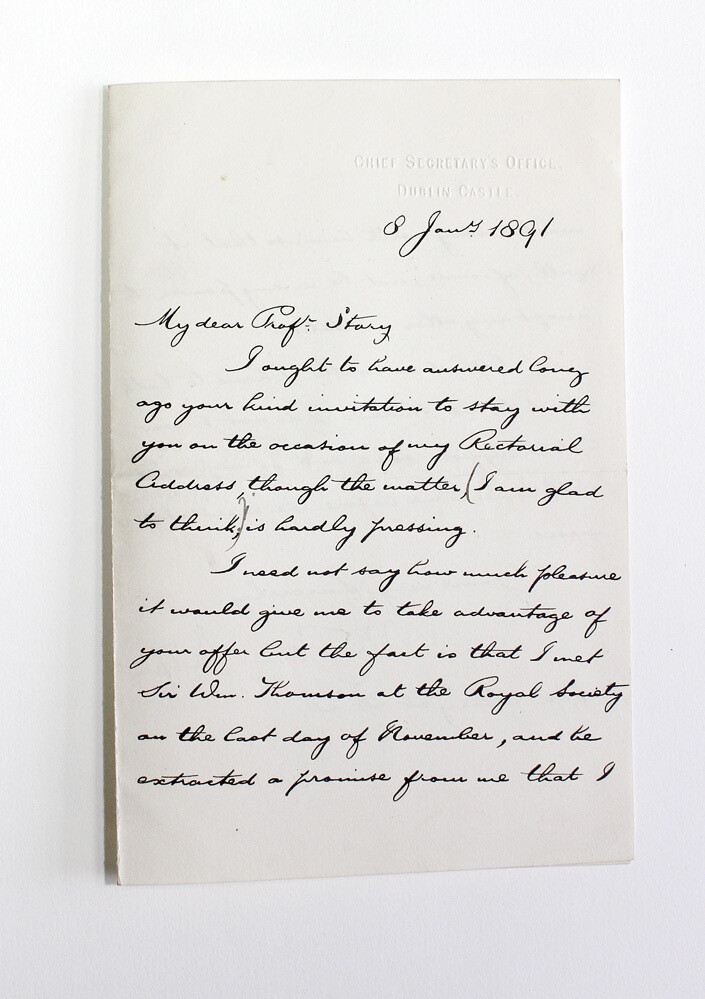 CHIEF SECRETARY'S OFFICE,
DUBLIN CASTLE.
8 Jany 1891
My dear Profr. Story
I ought to have answered long
ago your kind invitation to stay with
you on the occasion of my Rectorial
Address, though the matter, (I am glad
to think,) is hardly pressing.
I need not say how much pleasure
it would give me to take advantage of
your offer but the fact is that I met
Sir Wm. Thomson at the Royal Society
on the last day of November, and he
extracted a promise from me that I